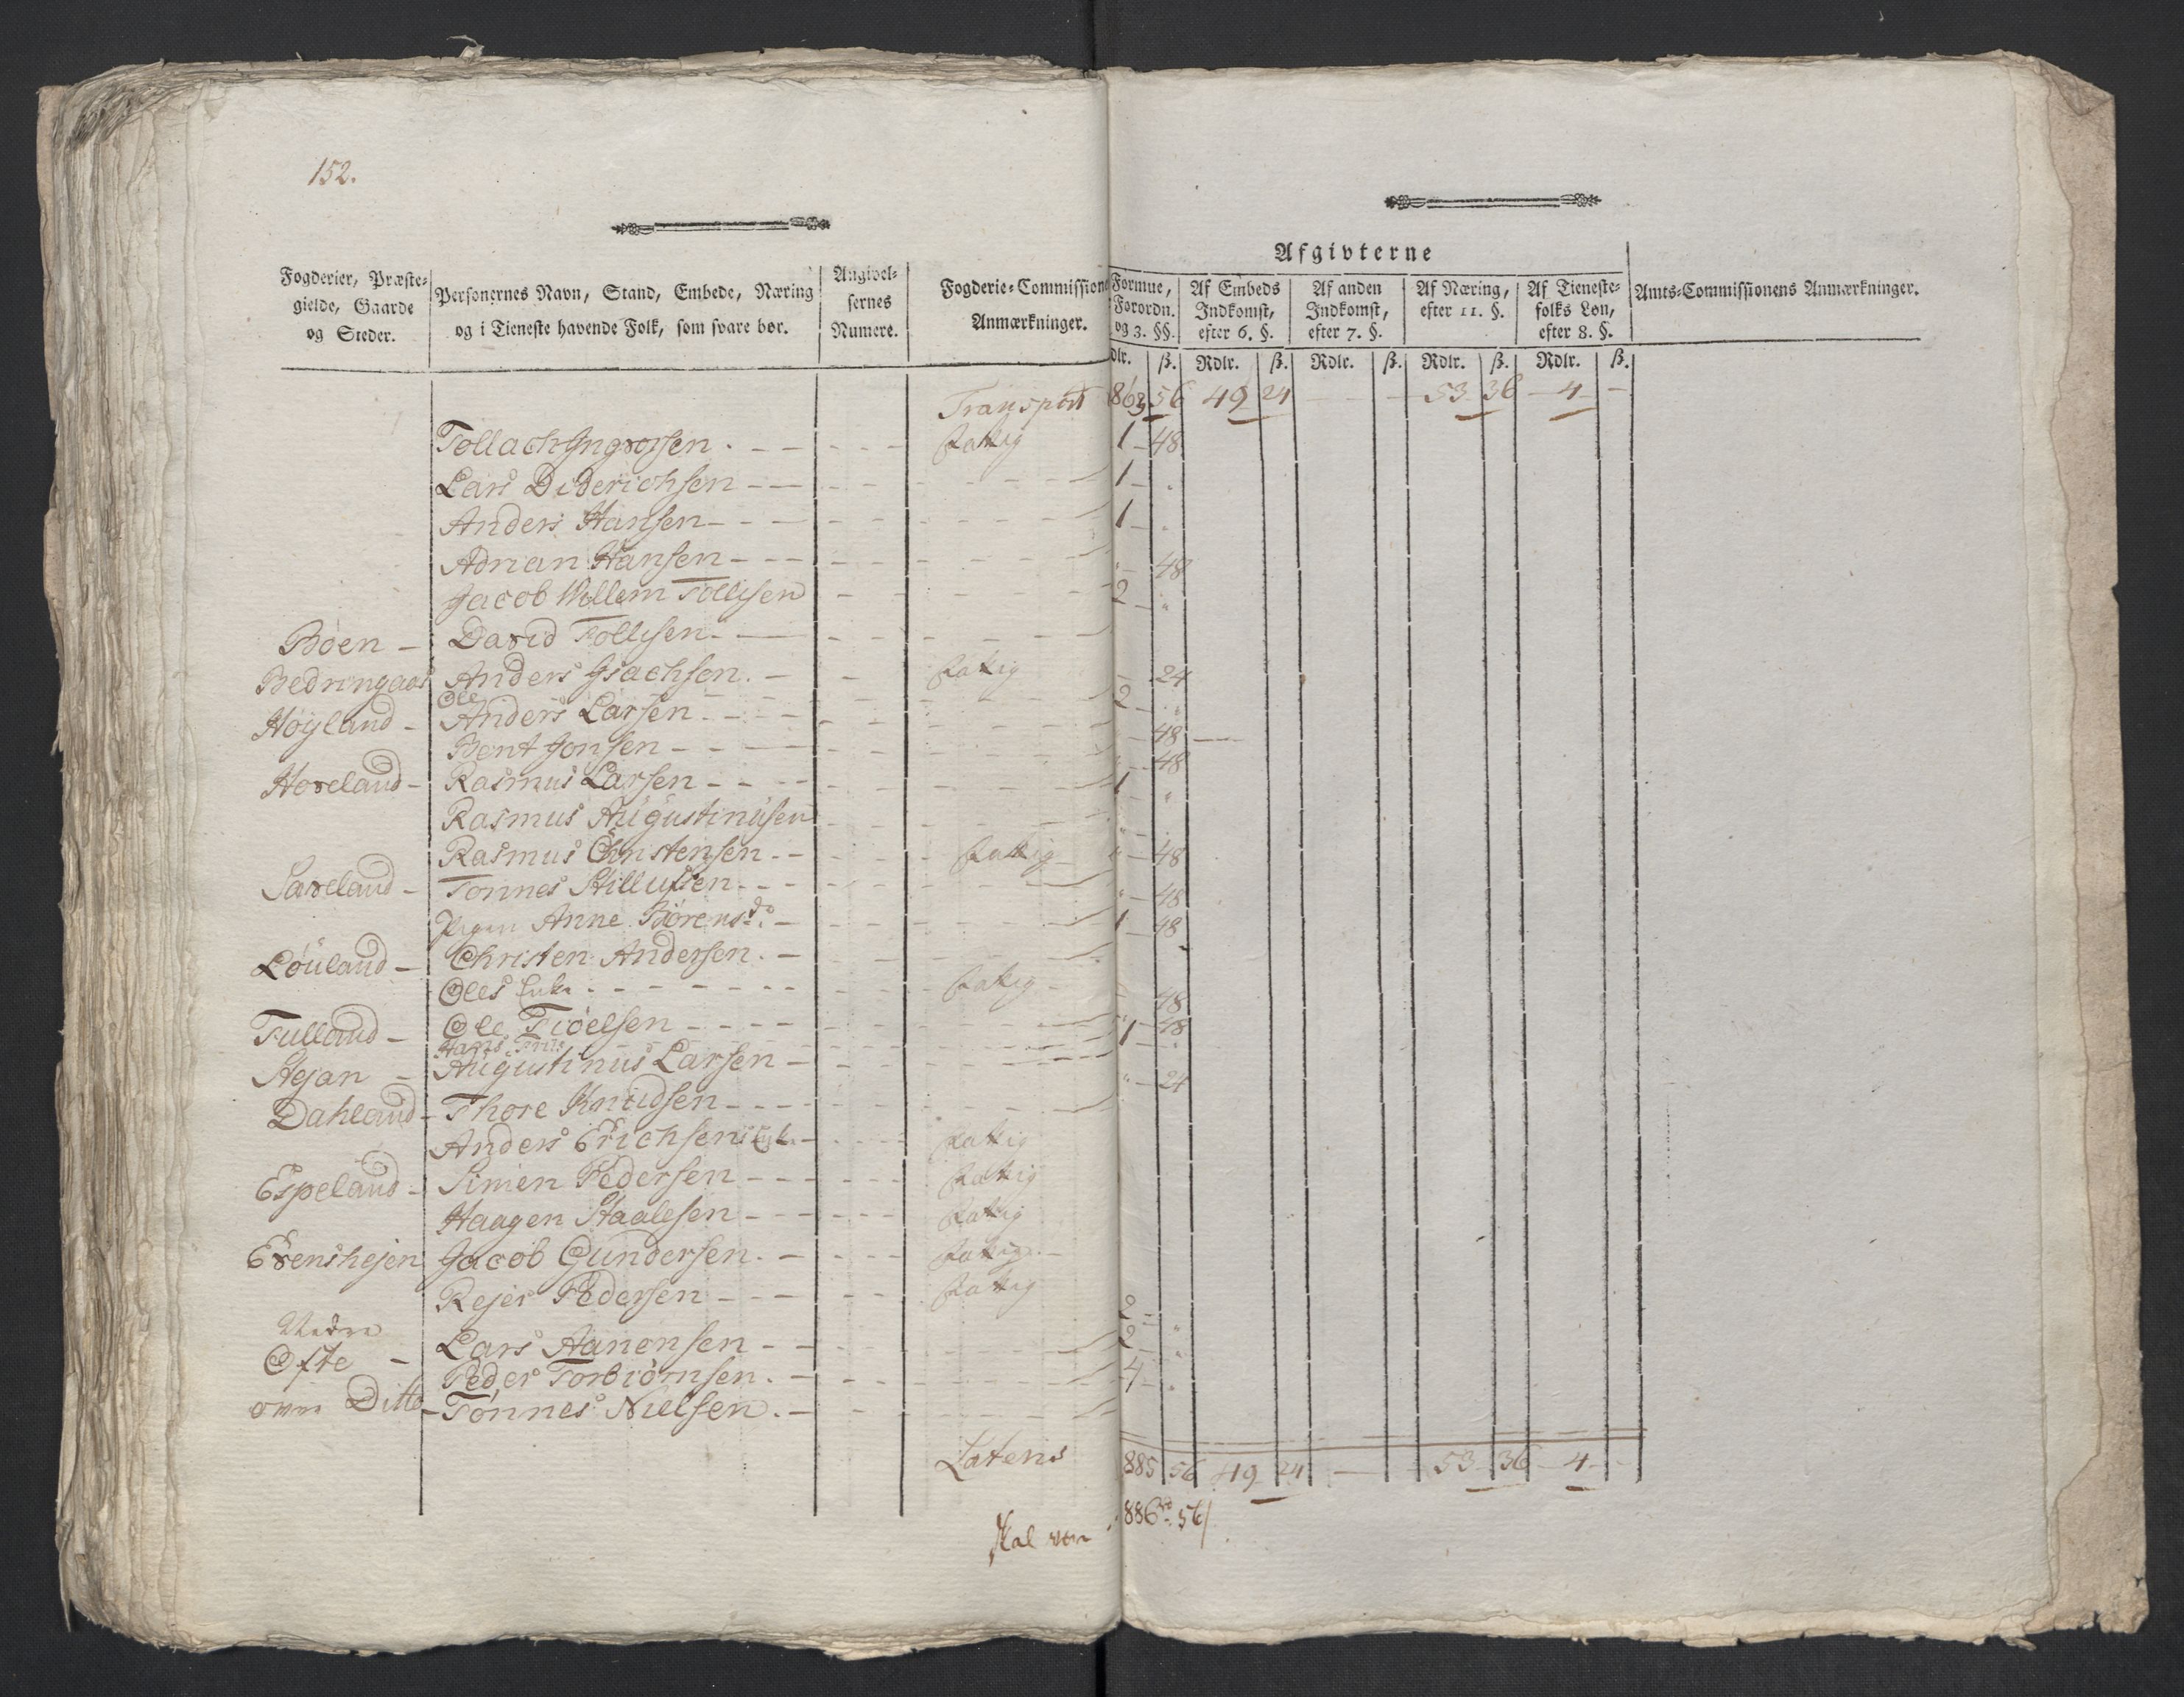 152.
Afgivterne
Fogderier, Præste-gielde, Gaarde og Steder. Personernes Navn, Stand, Embede, Næring og i Tieneste havende Folk, som svare bør. Angivel-sernes Numere. Fogderie-Commissione Anmærkninger. Formue, Forordn. og 3. §§. Af Embeds Indkomst, efter 6. §. Af anden Indkomst, efter 7. §. Af Næring, efter 11. §. Af Tieneste-folks Løn, efter 8. §. Amts-Commissionens Anmærkninger.
dlr. ß. Rdlr. ß. Rdlr. ß. Rdlr. ß. Rdlr. ß.
Transport 863 56 49 24 — — 53 36 4 —
Tollach Ingvorsen fattig
Lars Diderichsen 1 48
Anders Hansen 1 "
Adrian Hansen 1 "
Jacob Willem Tollisen " 48
Bøen David Tollisen 2 "
Anders Isachsen fattig
Høyland Ole Anders Larsen 24
Bent Jonsen 2 "
Hoveland Rasmus Larsen " 48
Rasmus Augustinusen " 48
Rasmus Christensen fattig
Saveland Tønnes Stillufsen 1 "
Anne Børensd.
Løuland Christen Andersen " 48
Oles Enke fattig
Fulland Ole Fiøelsen 1 48
Stejan Augustinus Larsen
Dahland Thore Knudsen " 24
Anders Erichsens Enke fattig
Espeland Simen Pedersen fattig
Haagen Staalesen fattig
Evenshejen Jacob Gundersen fattig
Rejer Pedersen fattig
Nedre Ofte Lars Aanensen 2 "
Peder Torbiørnsen 2 "
øvre Ditto Tønnes Nielsen 4 "
Latens 885 56 49 24 — — 53 36 4 —
Skal være 886 rd 56